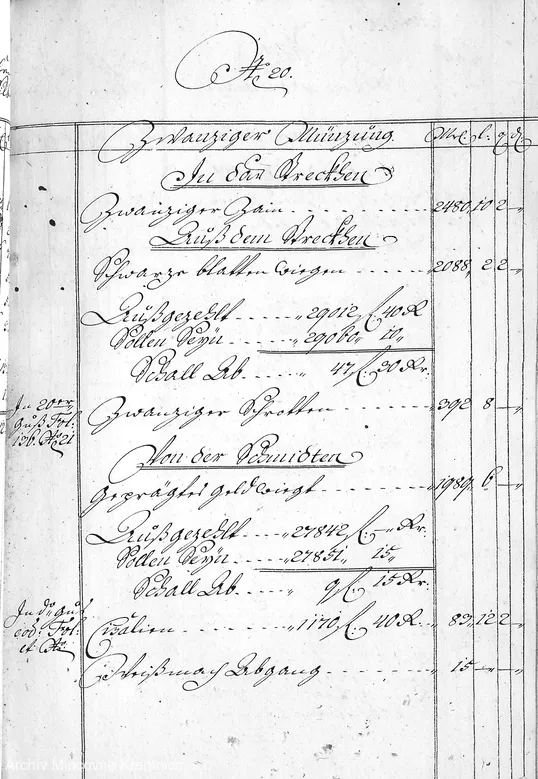 No 20.
Zwanziger Münzung. Mk. l. q d
In das Streckhen
Zwanziger Zain - - - - 2480, 10 2 -
Auß dem Streckhen
Schwarze blatten wiegen - - - - 2088, 2 2 -
Außgezehlt - - - 29012, f. 40 Kr
Sollen Seyn - - - 29060, 10
Schall Ab - - 47 f. 30 Kr.
In 20er
guß Fol:
136. No 21
Zwanziger Schrotten - - - - 392 8 -
Von der Schmidten
Geprägtes geld wiegt - - - - 1989, 6 -
Außgezehlt - - - 27842 f. - Kr.
Sollen Seyn - - - 27851, 15
Schall Ab - - 9 f. 15 Kr.
In do guß
eod: Fol:
et No
Cisalien - - - 1170 f. 40 Kr - - 83, 12 2
Weißmach Abgang - - - - 15 - -
Archiv Mincovne Kremnica